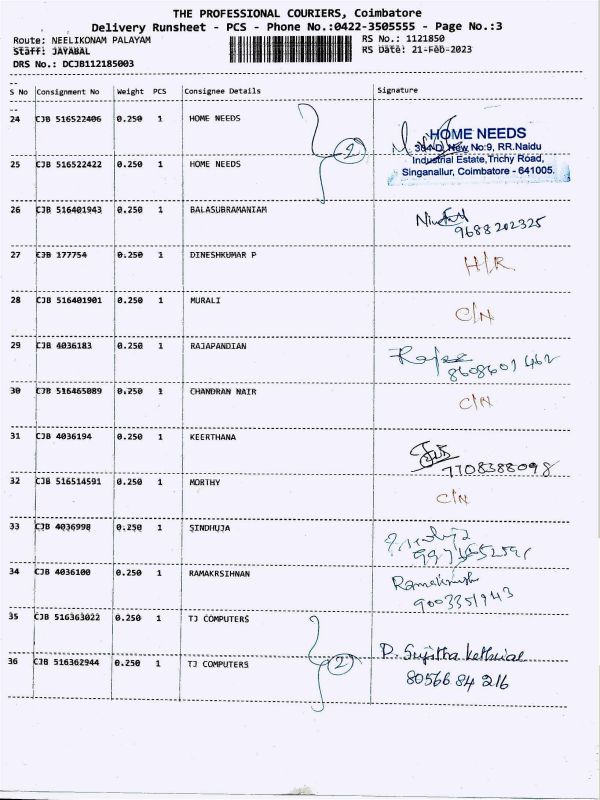 THE PROFESSIONAL COURIERS, Coimbatore
Delivery Runsheet - PCS - Phone No.:0422-3505555 - Page No.:3
Route: NEELIKONAM PALAYAM RS No.: 1121850
Staff: JAYABAL RS Date: 21-Feb-2023
DRS No.: DCJB112185003
S No Consignment No Weight PCS Consignee Details Signature
24 CJB 516522406 0.250 1 HOME NEEDS
2
HOME NEEDS
384-D, New No:9, RR.Naidu
Industrial Estate,Trichy Road,
Singanallur, Coimbatore - 641005.
25 CJB 516522422 0.250 1 HOME NEEDS
26 CJB 516401943 0.250 1 BALASUBRAMANIAM
9688202325
27 CJB 177754 0.250 1 DINESHKUMAR P H/R
28 CJB 516401901 0.250 1 MURALI C/N
29 CJB 4036183 0.250 1 RAJAPANDIAN
8608601462
30 CJB 516465089 0.250 1 CHANDRAN NAIR C/N
31 CJB 4036194 0.250 1 KEERTHANA
7708388098
32 CJB 516514591 0.250 1 MORTHY C/N
33 CJB 4036998 0.250 1 SINDHUJA
34 CJB 4036100 0.250 1 RAMAKRSIHNAN
9003351943
35 CJB 516363022 0.250 1 TJ COMPUTERS
36 CJB 516362944 0.250 1 TJ COMPUTERS 2 P. Sujitha
80566 84 216